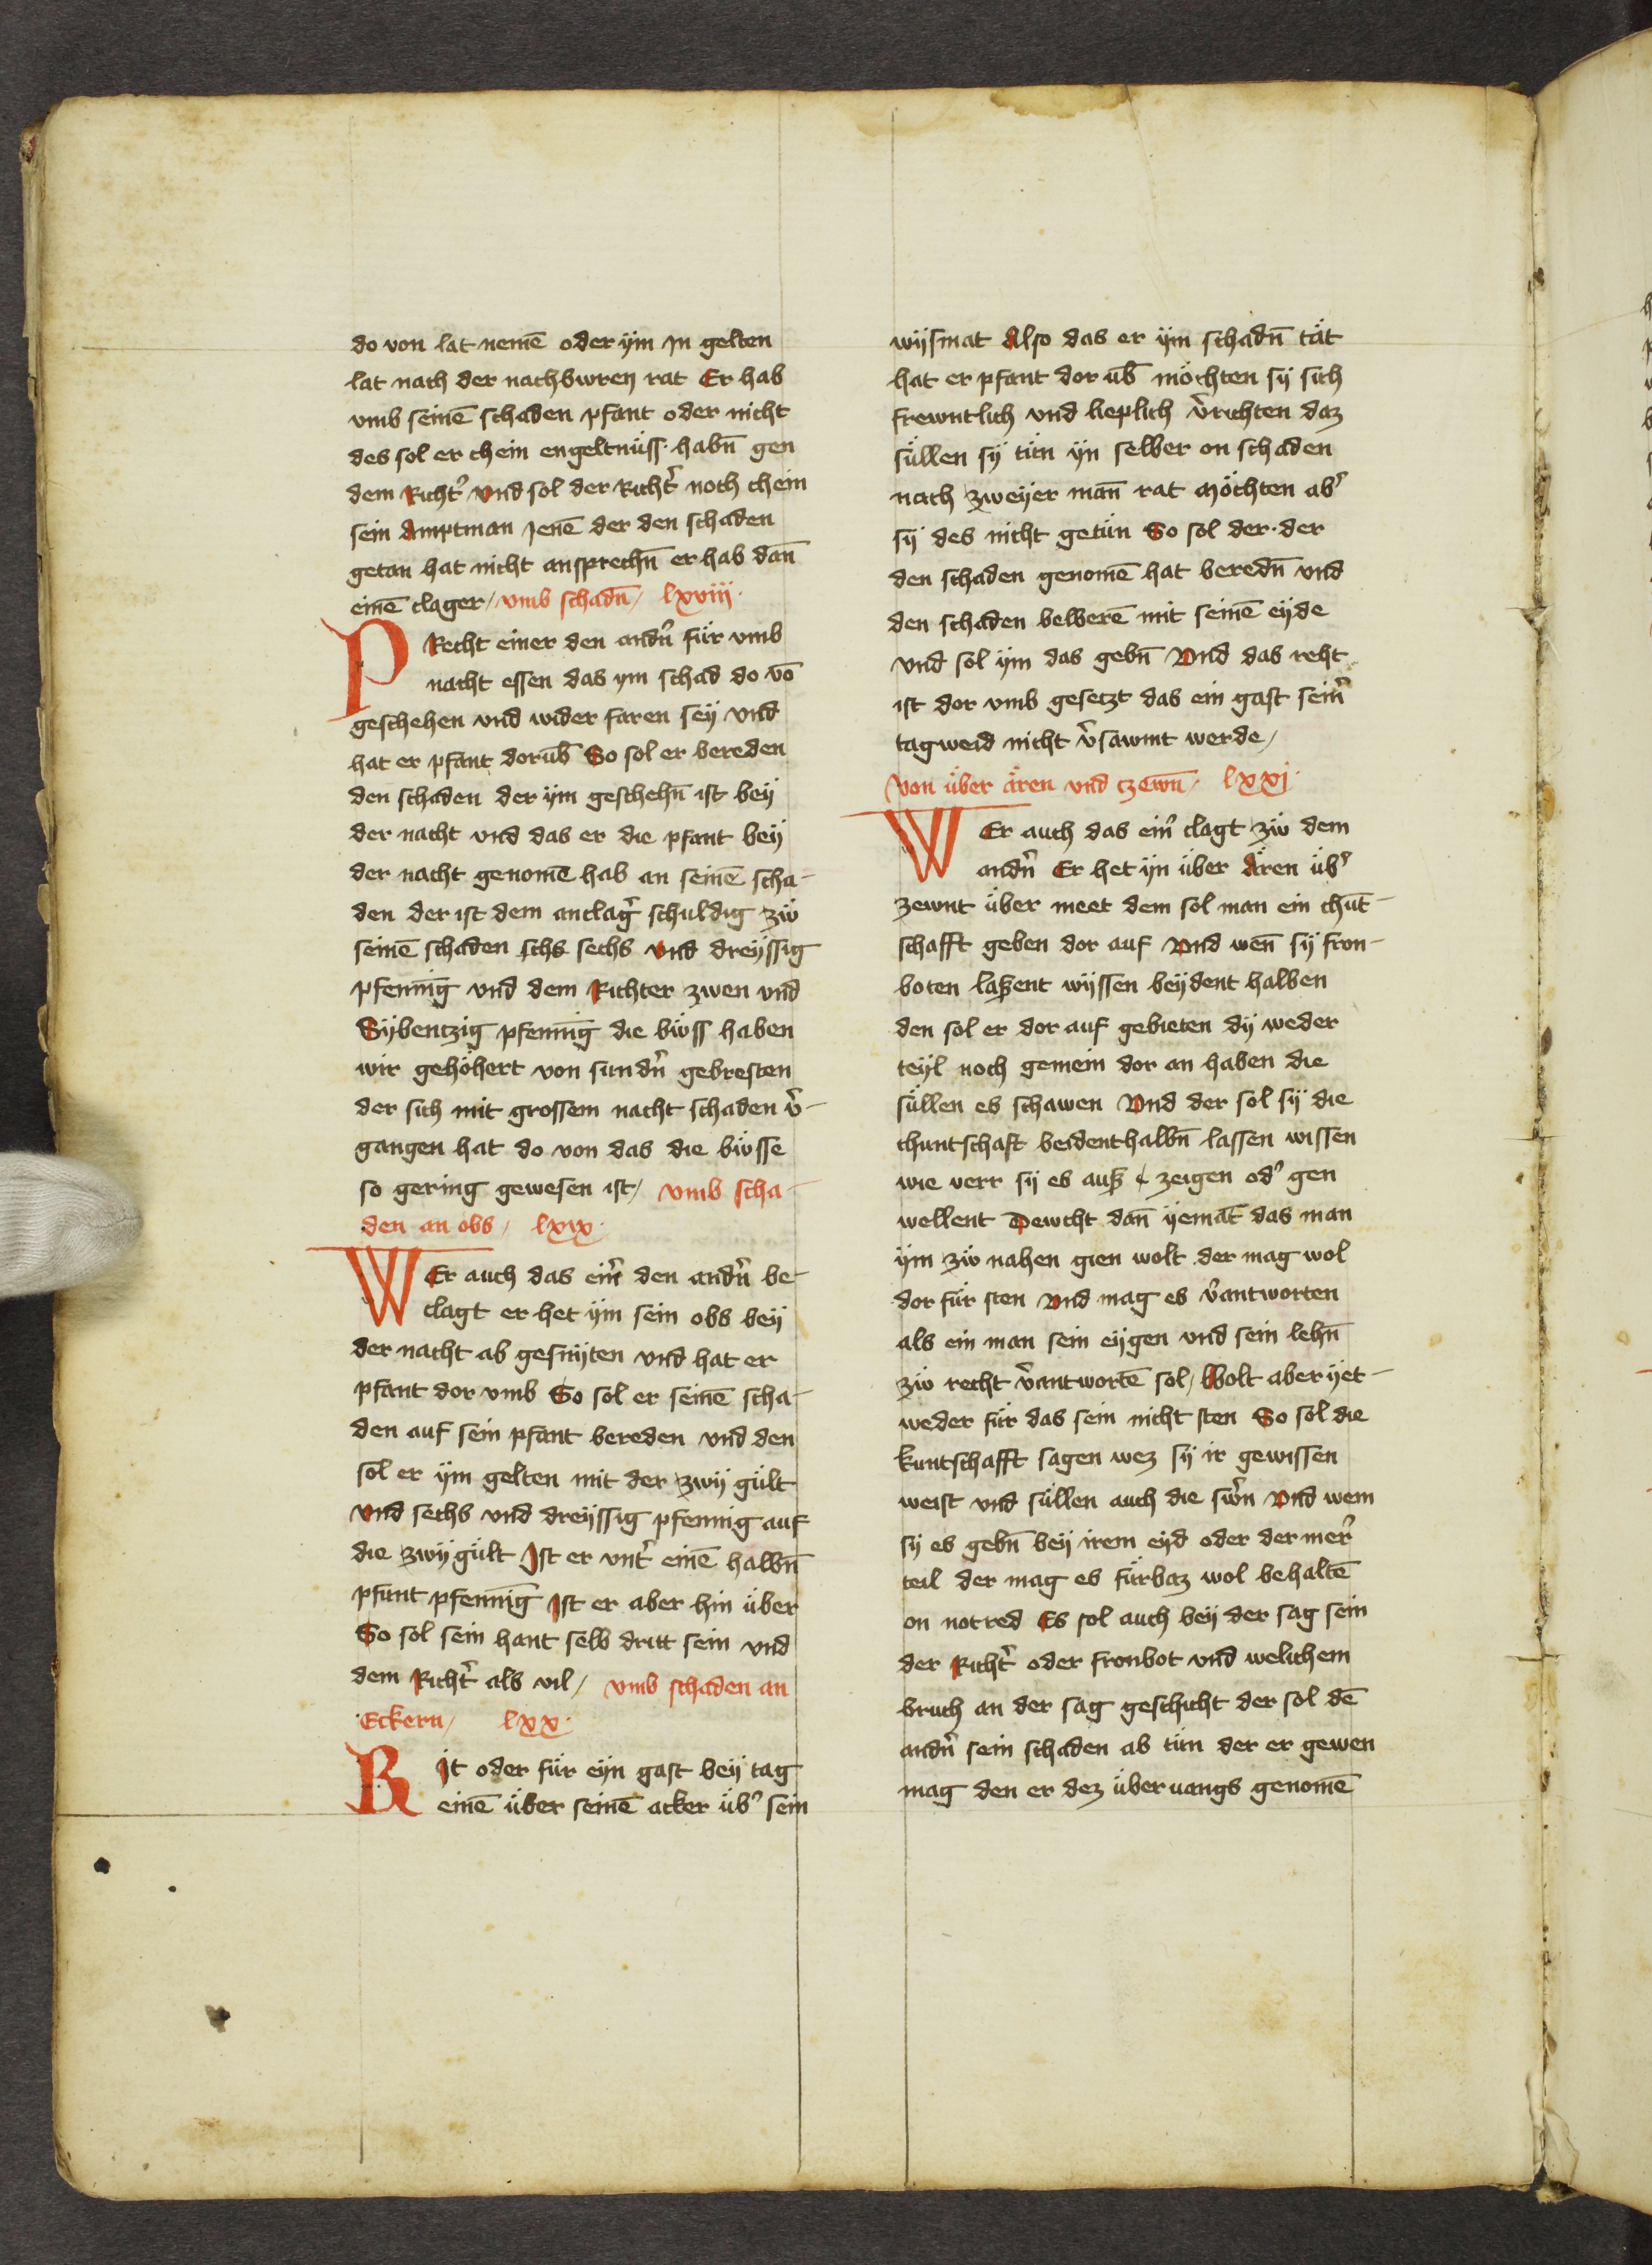 do von lat nemē oder ÿm Jn gelten
lat nach der nachbwren rat Er hab
vmb seinē schaden pfant oder nicht
des sol er chein engeltnüss habn̄ gen
dem Richt᷑ vnd sol der Richt᷑ noch chein
sein Amptman Jenē der den schaden
getan hat nicht ansprechn̄ er hab dan̄
einē clager / vmb schadn̄ / lxviij ·
PRecht einer den andn᷑ für vmb
nacht essen das ym schad do vō
geschehen vnd wider faren seÿ vnd
hat er pfant dorūb So sol er bereden
den schaden der ÿm geschehn̄ ist beÿ
der nacht vnd das er die pfant beÿ
der nacht genomē hab an seinē scha-
den der ist dem anclag᷑ schuldig zw̎
seinē schaden schs sechs vnd dreÿssig
pfennīg vnd dem Richter zwen vnd
Sÿbentzig pfennīg die bw̎ss haben
wir gehöhert von sundn᷑ gebresten
der sich mit grossem nacht schaden v᷑-
gangen hat do von das die bw̎sse
so gering gewesen ist / vmb scha-
den an obs / lxix ·
WEr auch das ein᷑ den andn᷑ be-
clagt er het ÿm sein obs beÿ
der nacht ab gesnÿten vnd hat er
pfant dor vmb So sol er seinē scha-
den auf sein pfant bereden vnd den
sol er ÿm gelten mit der zwÿ gült
vnd sechs vnd dreÿssig pfennig auf
die zwÿ gült Jst er vnt᷑ einē halbn̄
pfunt pfennīg Jst er aber hin über
So sol sein hant selb dritt sein vnd
dem Richt᷑ als vil / vmb schaden an
Eckern / lxx ·
RJt oder für eÿn gast beÿ tag
einē über seinē acker üb᷑ sein
wÿsmat Also das er ÿm schadn̄ tät
hat er pfant dor ūb möchten sÿ sich
frewntlich vnd lieplich v᷑richten daz
süllen sÿ tün ÿn selber on schaden
nach zweÿer man̄ rat Möchten ab᷑
sÿ des nicht getün So sol der · der
den schaden genomē hat beredn̄ vnd
den schaden belberē mit seinē eÿde
vnd sol ÿm das gebn̄ Vnd das reht
ist dor vmb gesetzt das ein gast sein᷑
tagweid nicht v᷑sawmt werde /
Von über ären vnd tzewn̄ / lxxj ·
WEr auch das ein᷑ clagt zw̎ dem
andn᷑ Er het ÿn über Ären üb᷑
zewnt über meet dem sol man ein chūt-
schafft geben dor auf Vnd wen̄ sÿ fron-
boten laßent wÿssen beÿdent halben
den sol er dor auf gebieten dÿ weder
teÿl noch gemein dor an haben die
süllen es schawen Vnd der sol sÿ die
chuntschaft beidenthalbn̄ lassen wissen
wie verr sÿ es auß zeigen od᷑ gen
wellent Dewcht dan̄ ÿemāt das man
ÿm zw̎ nahen gien wolt der mag wol
dor für sten Vnd mag es v᷑antworten
als ein man sein eÿgen vnd sein lehn̄
zw̎ recht v᷑antwortē sol / Wolt aber ÿet-
weder für das sein nicht sten So sol die
kuntschafft sagen wez sÿ ir gewissen
weist vnd süllen auch die sw᷑n Vnd wem
sÿ es gebn̄ beÿ irem eÿd oder der mer᷑
teil der mag es fürbaz wol behaltē
on notred Es sol auch beÿ der sag sein
der Richt᷑ oder fronbot vnd welichem
bruch an der sag geschicht der sol dē
andn᷑ sein schaden ab tün der er gewen
mag den er dez über vangs genomē